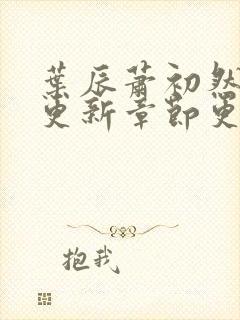 葉辰蕭初然
更新章節更
抱我